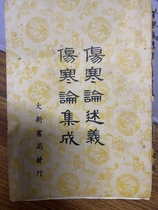 傷寒論述義
傷寒論集成
大新書局發行